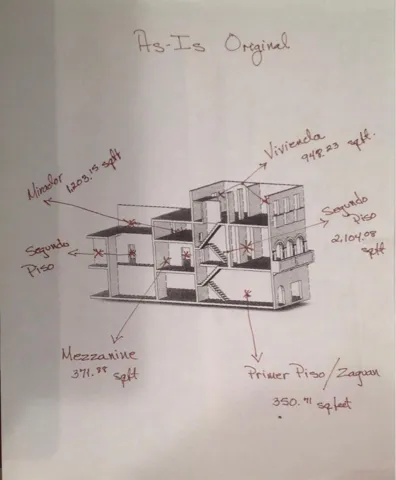 As-Is Original
Vivienda
948.23 sqft.
Mirador 1203.15 sqft
Segundo
Piso
2,104.08
sqft
Segundo
Piso
Mezzanine
371.88 sqft
Primer Piso/Zaguan
350.71 sqfeet